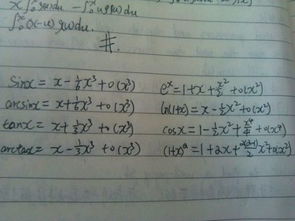 x∫₀ˣ g(u)du - ∫₀ˣ u g(u)du
∫₀ˣ(x-u) g(u)du
#.
sinx = x - 1/6 x³ + o(x³) eˣ = 1+x+ x²/2 + o(x²)
arcsinx = x + 1/6 x³ + o(x³) ln(1+x) = x - 1/2 x² + o(x²)
tanx = x + 1/3 x³ + o(x³) cosx = 1 - 1/2 x² + + o(x⁴)
arctanx = x - 1/3 x³ + o(x³) (1+x)ᵃ = 1+2x+ x² + o(x²)